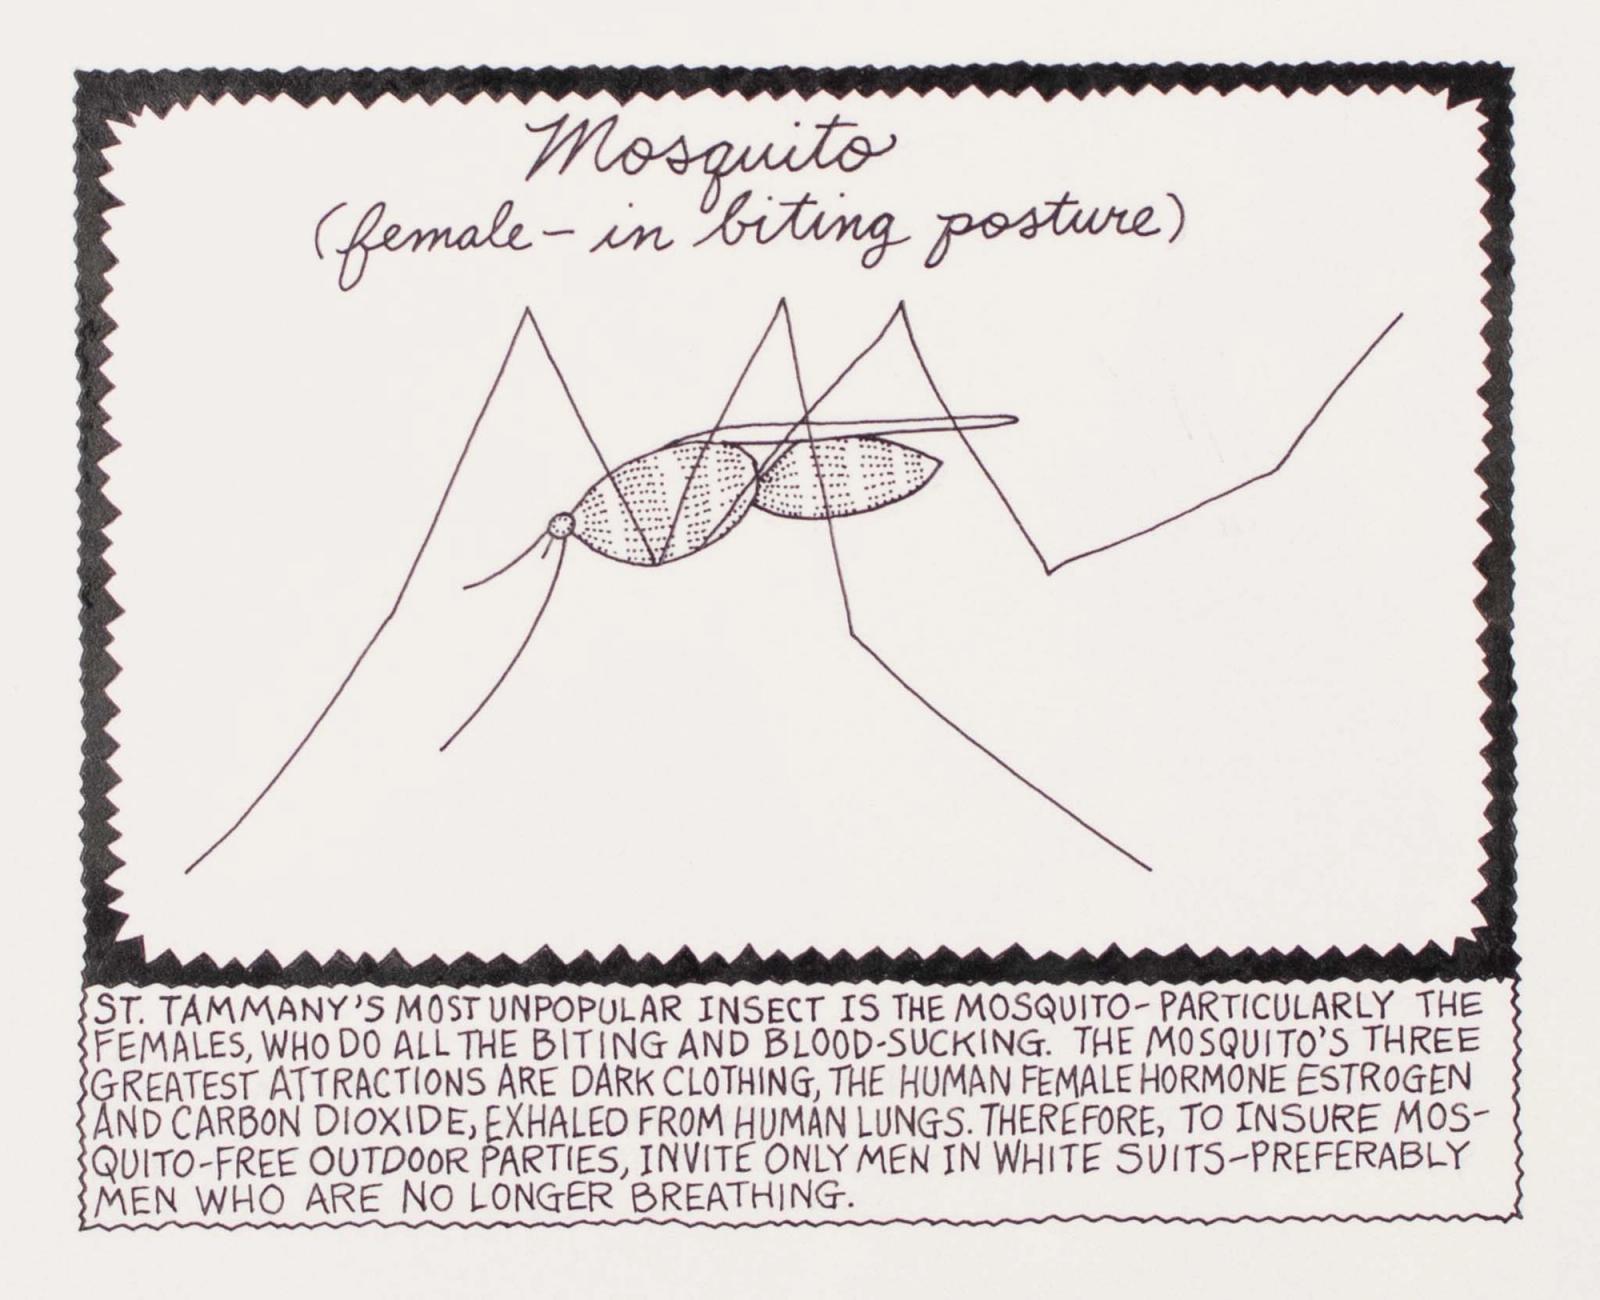 Mosquito
(female – in biting posture)
ST. TAMMANY'S MOST UNPOPULAR INSECT IS THE MOSQUITO – PARTICULARLY THE
FEMALES, WHO DO ALL THE BITING AND BLOOD-SUCKING. THE MOSQUITO'S THREE
GREATEST ATTRACTIONS ARE DARK CLOTHING, THE HUMAN FEMALE HORMONE ESTROGEN
AND CARBON DIOXIDE, EXHALED FROM HUMAN LUNGS. THEREFORE, TO INSURE MOS-
QUITO-FREE OUTDOOR PARTIES, INVITE ONLY MEN IN WHITE SUITS – PREFERABLY
MEN WHO ARE NO LONGER BREATHING.